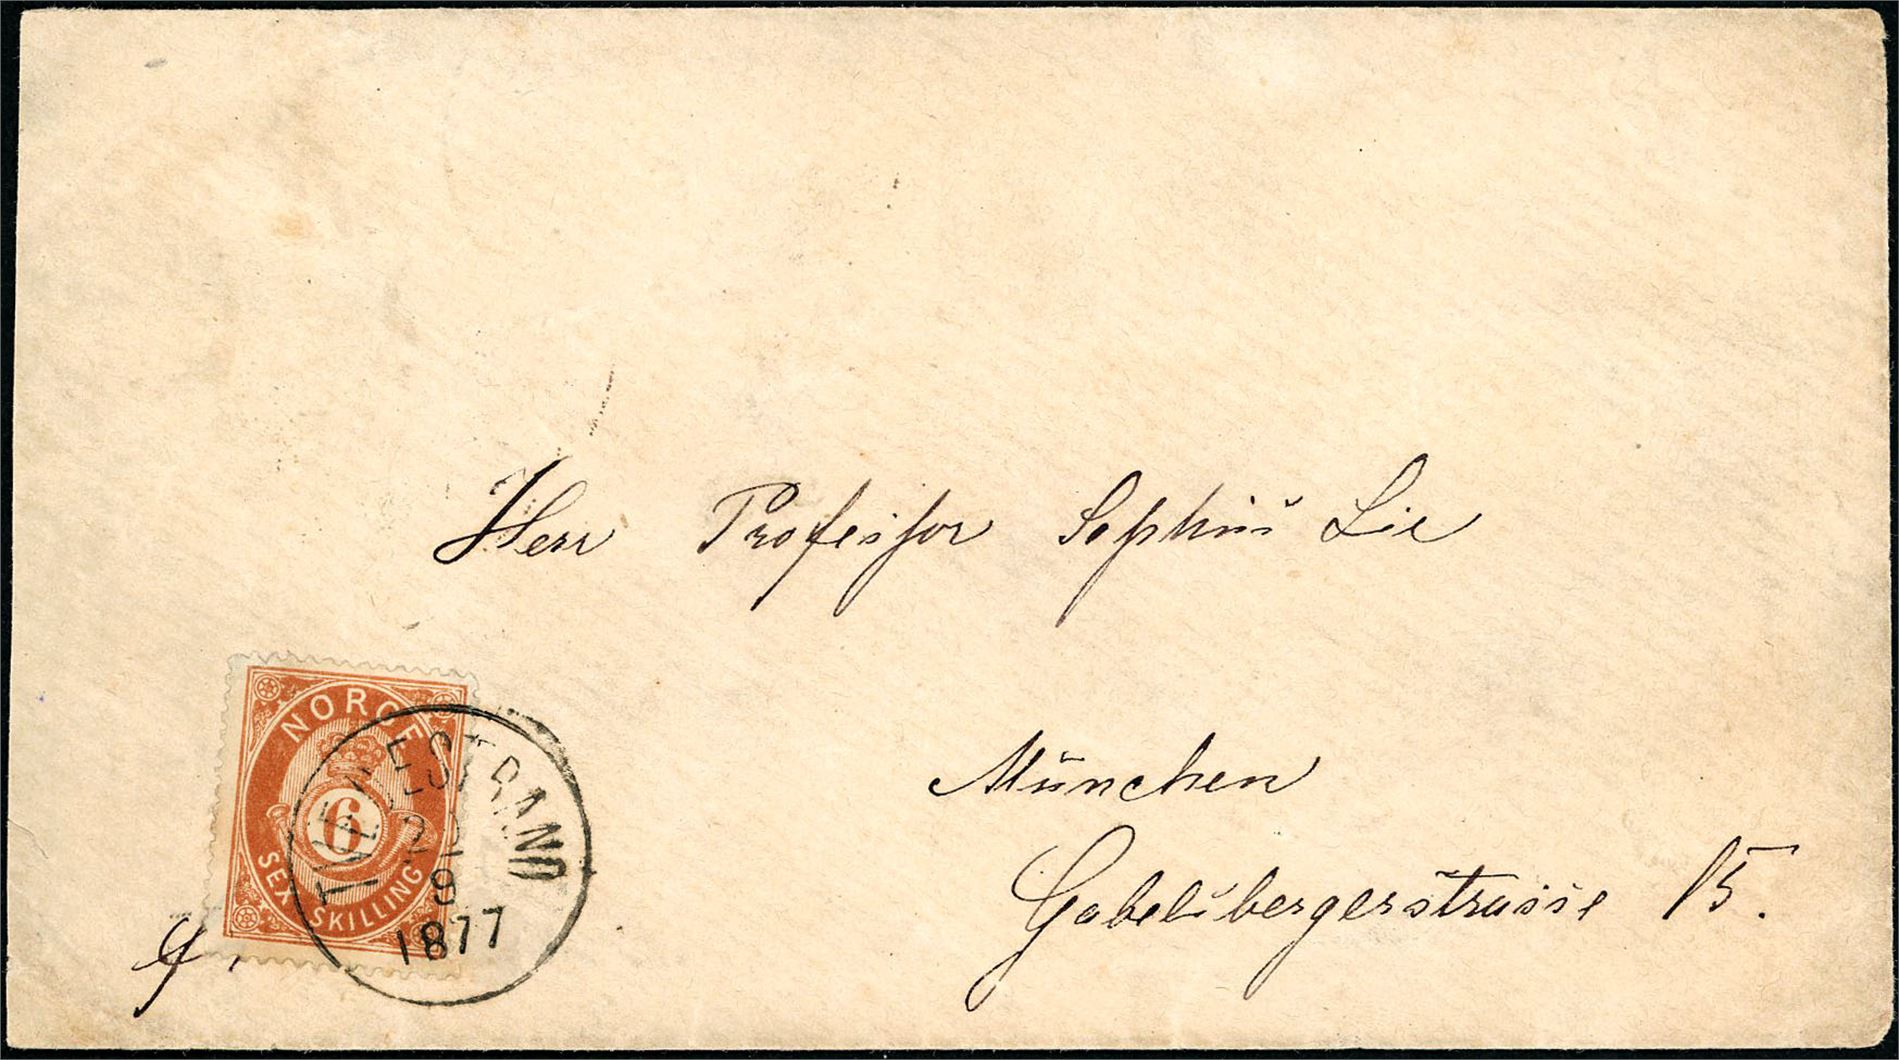 Herr Professor Sophus Lie
München
Gabelsbergerstrasse 15.
NORGE
6
SEX SKILLING
TVEDESTRAND
22
9
1877